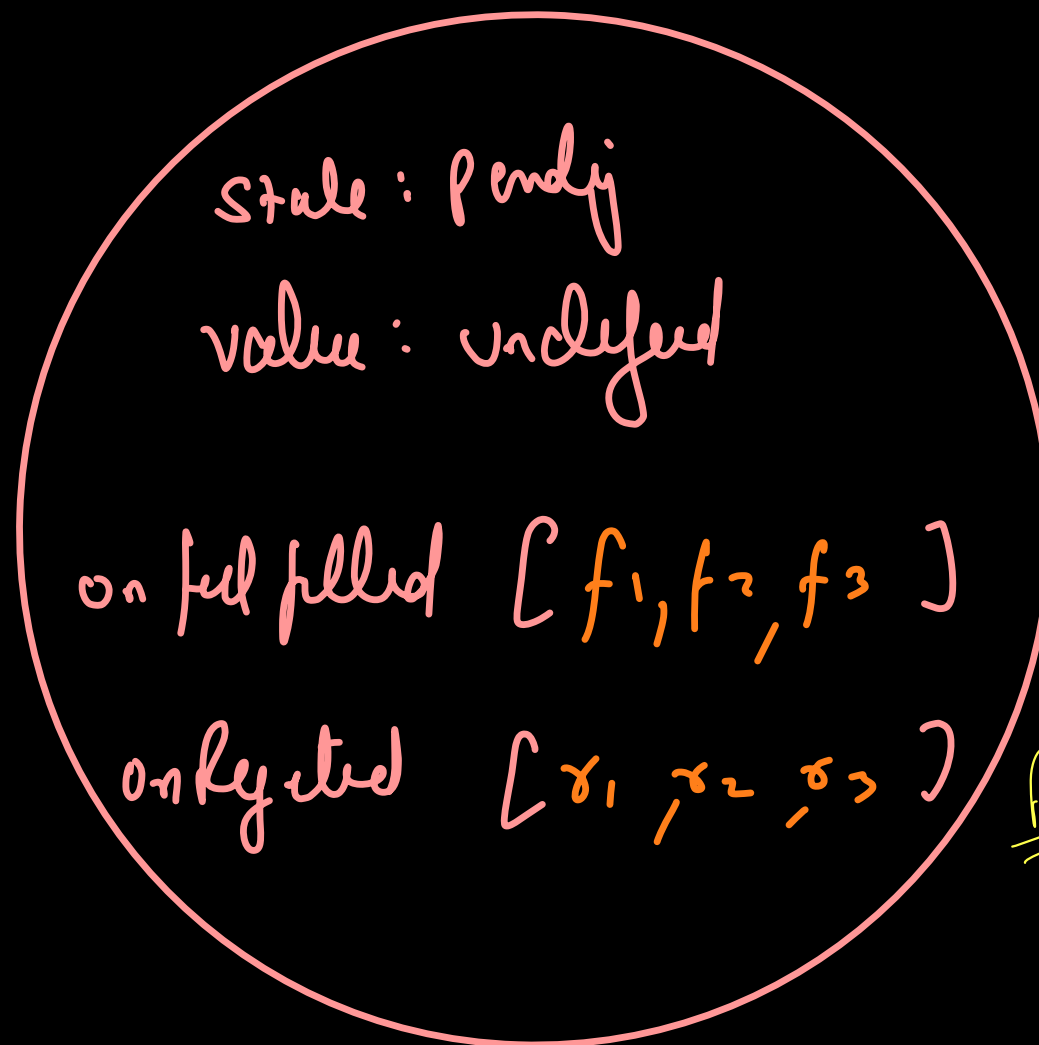 state : pending
value : undefined
onfulfilled [ f1, f2, f3 ]
onRejected [ r1, r2, r3 ]